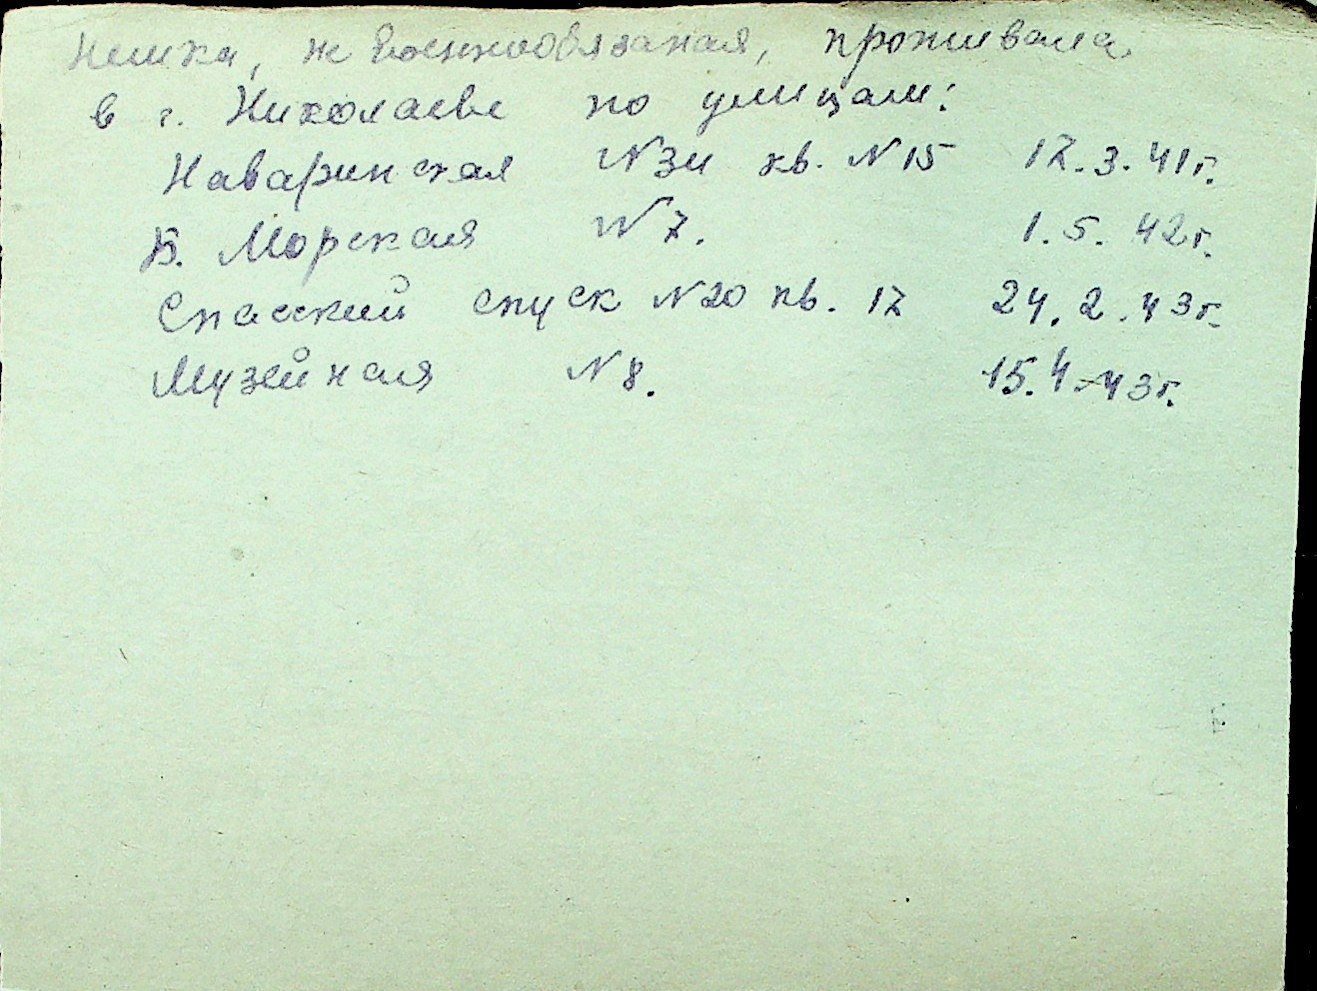 Немка, не военнообязаная, проживала
в г. Николаеве по улицам:
Наваринская № 34 кв. № 15 17.3.41г.
Б. Морская № 7. 1.5.42г.
Спасский спуск № 20 кв. 17 24.2.43г.
Музейная № 8. 15.4-43г.